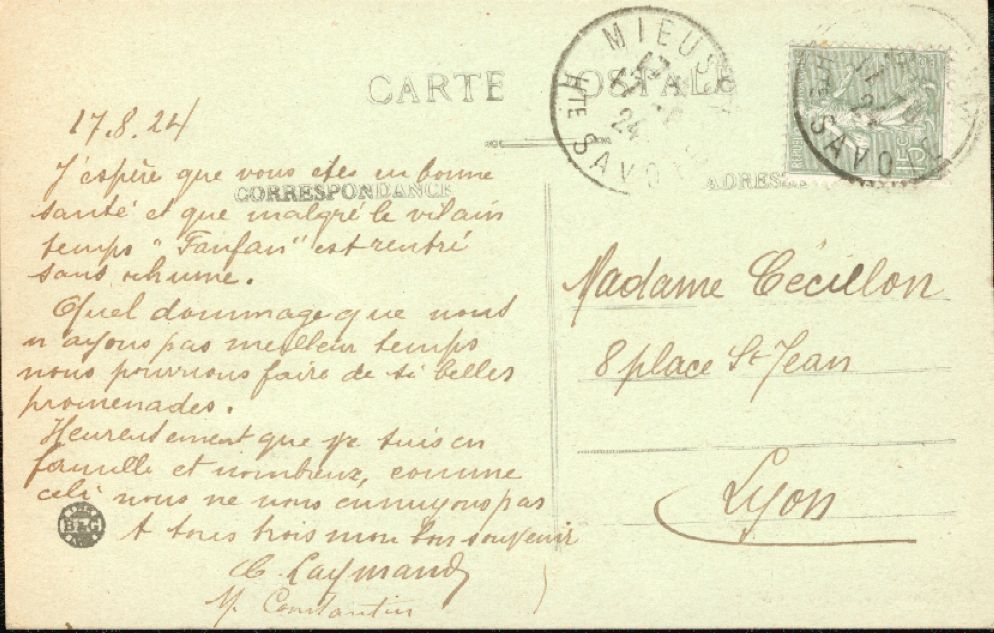 CARTE POSTALE
MIEUSSY
HTE SAVOIE
15c
CORRESPONDANCE
ADRESSE
17.8.24
J'espère que vous etes en bonne
santé et que malgré le vilain
temps "Fanfan" est rentré
sans rhume.
Quel dommage que nous
n'ayons pas meilleur temps
nous pourrions faire de si belles
promenades.
Heureusement que je suis en
famille et nombreux, comme
celà nous ne nous ennuyons pas
A tous trois mon bon souvenir
C. Laymand
M. Constantin
B&G
Madame Cécillon
8 place St-Jean
Lyon